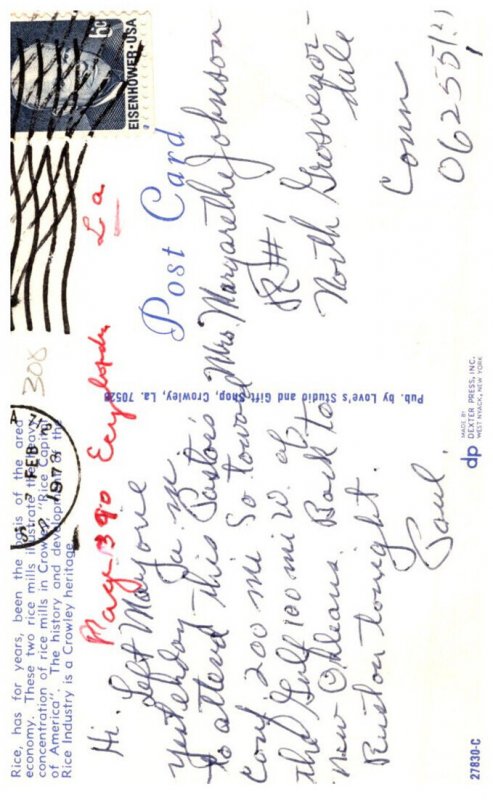 Rice, has for years, been the basis of the area
economy. These two rice mills illustrate the heavy
concentration of rice mills in Crowley, "Rice Capital
of America". The history and development of the
Rice Industry is a Crowley heritage.
Page 390 Ecyclopedia La
308
FEB
EISENHOWER·USA
6c
Post Card
Hi. Left Maryone
yesterday in
to attend this Pastor's
Conf 200 mi So toward
the Gulf 100 mi W. of
New Orleans. Back to
Ruston tonight.
Paul.
Mrs. Margarethe Johnson
R#1
North Grosvenor-
dale
Conn
06255
Pub. by Love's Studio and Gift Shop, Crowley, La. 70526
MADE BY
dp DEXTER PRESS, INC.
WEST NYACK, NEW YORK
27830-C